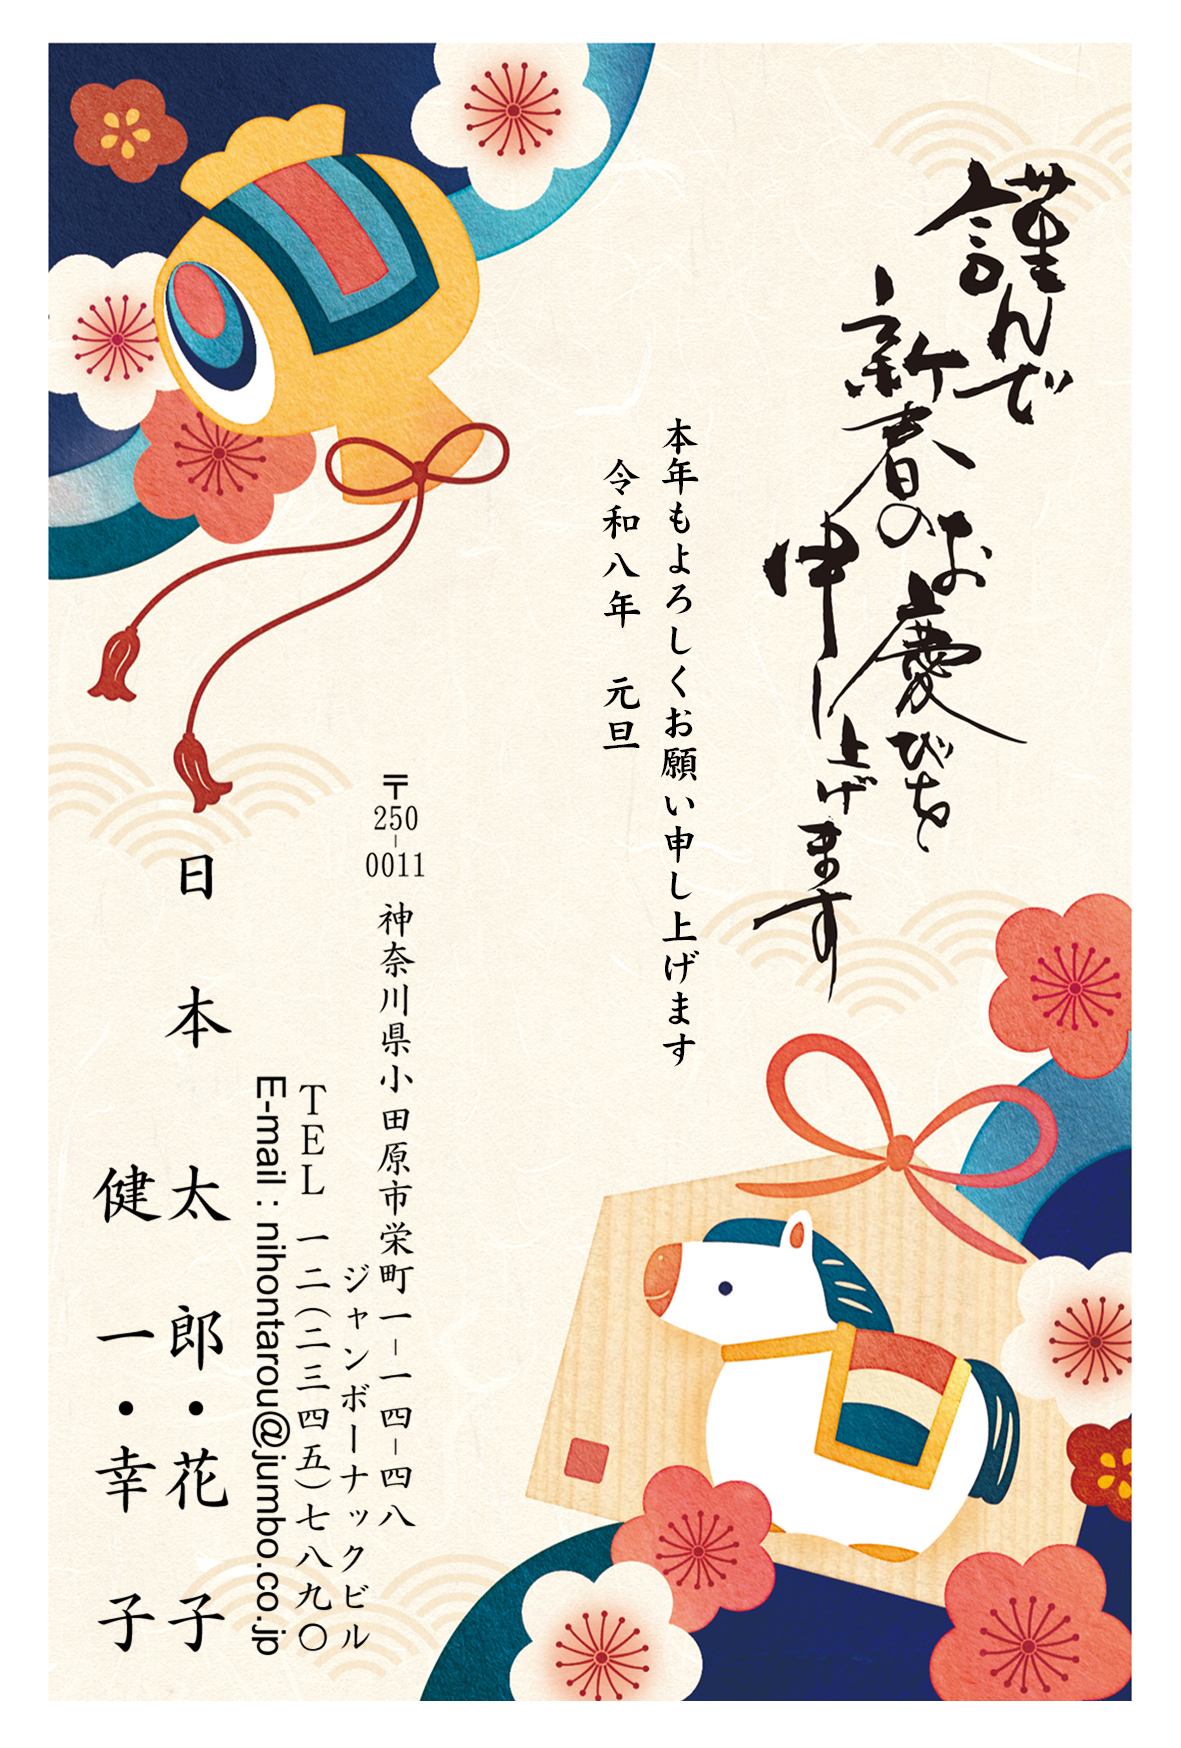 謹んで
新春のお慶びを
申し上げます
本年もよろしくお願い申し上げます
令和八年　元旦
〒250-0011 神奈川県小田原市栄町一-一四-四八
ジャンボーナックビル
TEL 一二(二三四五)七八九〇
E-mail : nihontarou@jumbo.co.jp
日本 太郎・花子
健一・幸子